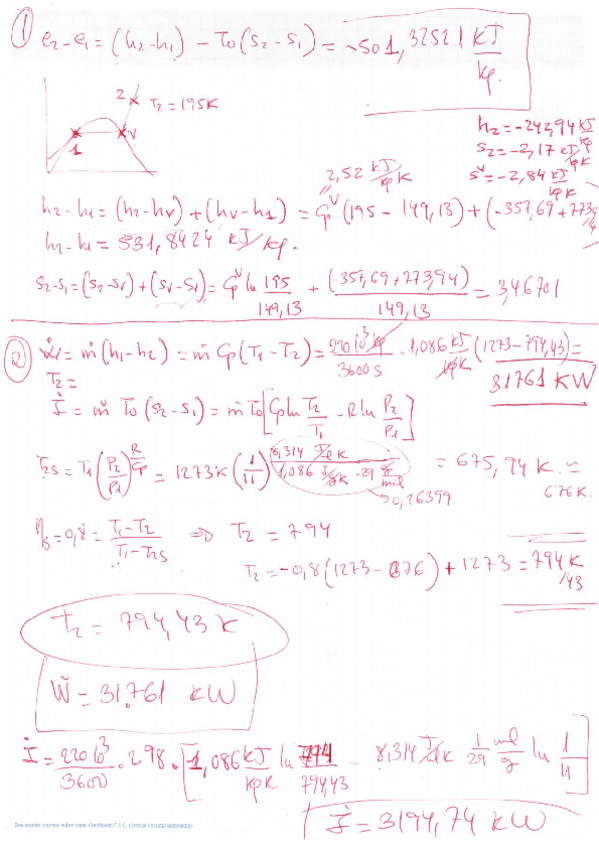 1
e2-e1 = (h2-h1) - T0(s2-s1) = -501,32521 kJ/kg.
2
T2 = 195K
1
v
h2 = -242,94 kJ/kg
s2 = -2,17 kJ/kgK
sv = -2,84 kJ/kgK
2,52 kJ/kgK
h2-h1 = (h2-hv) + (hv-h1) = Cp^v (195 - 149,13) + (-357,69 + 773,
h2-h1 = 531,8424 kJ/kg.
s2-s1 = (s2-sv) + (sv-s1) = Cp^v ln 195/149,13 + (-357,69 + 773,94)/149,13 = 3,46701
2
= ṁ(h1-h2) = ṁ Cp (T1-T2) = 220 10^3 kg/3600 s · 1,086 kJ/kgK (1273 - 794,43) =
31761 KW
T2 =
İ = ṁ T0 (s2-s1) = ṁ T0 [Cp ln T2/T1 - R ln P2/P1]
T2s = T1 (P2/P1)^R/Cp = 1273K (1/11)^ 8,314 J/ K / 1,086 J/gK · 29 g/mol = 675,94 K ≈
676K.
0,26399
ηs = 0,8 = T1-T2/T1-T2s ⇒ T2 = 794
T2 = -0,8 (1273 - 676) + 1273 = 794K
/43
T2 = 794,43 K
Ẇ = 31.761 KW
İ = 220 10^3/3600 · 298 · [1,086 kJ/kgK ln /794,43 - 8,314 J/ K 1/29 mol/g ln 1/11]
İ = 3194,74 KW